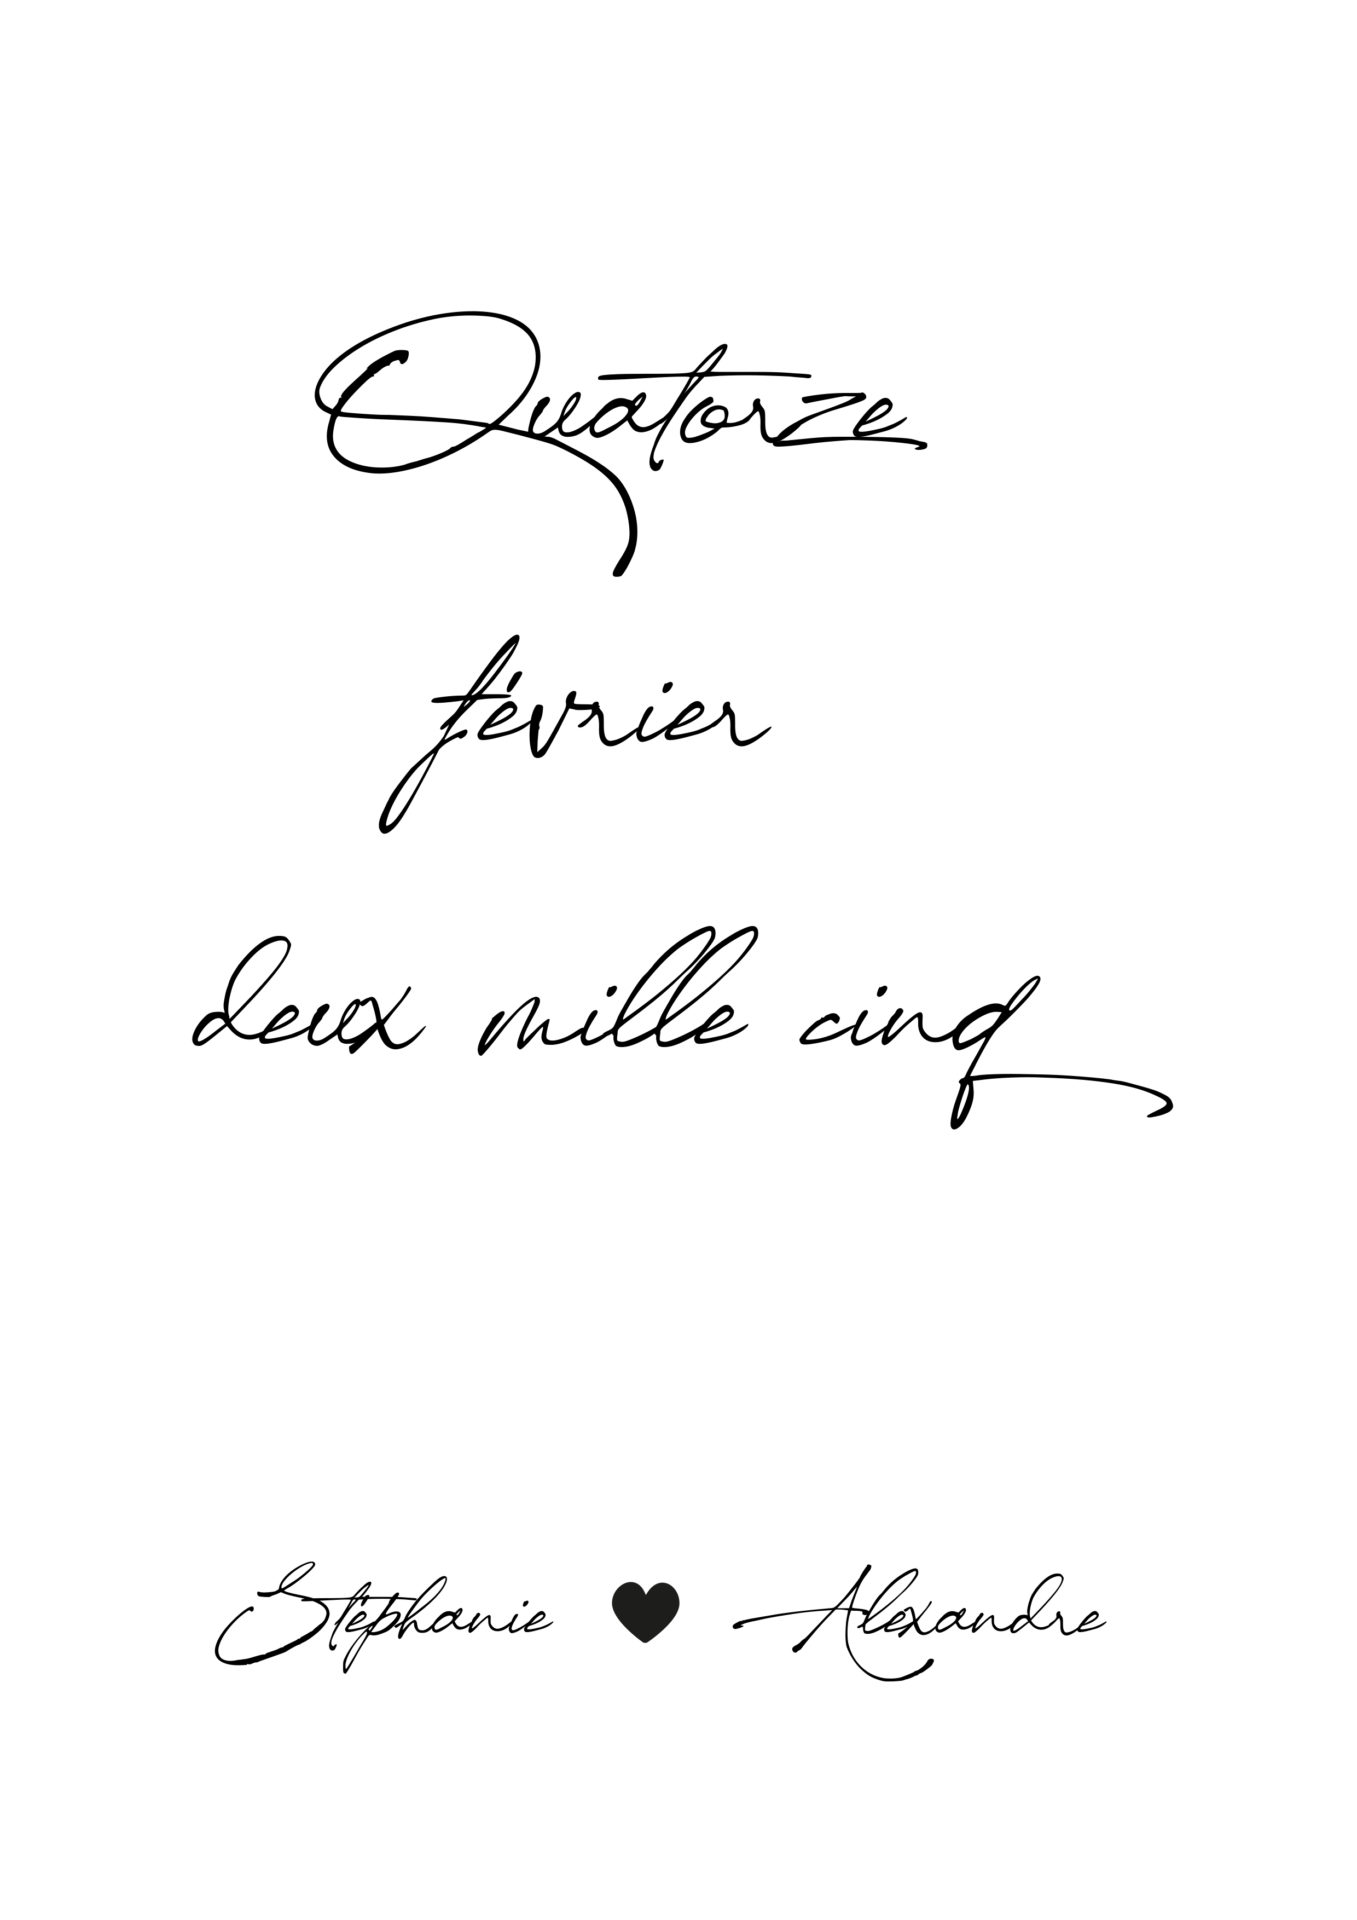 Quatorze
février
deux mille cinq
Stéphanie ♥ Alexandre